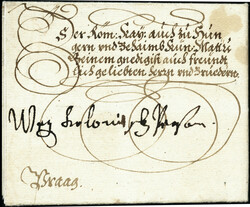 Der Röm: Kay: auch zu Hun
gern vnd Behaimb Kün: Maytt:
Meinem gnedigst: auch freundt
lich geliebten herrn vnd Bruedern.
Praag.